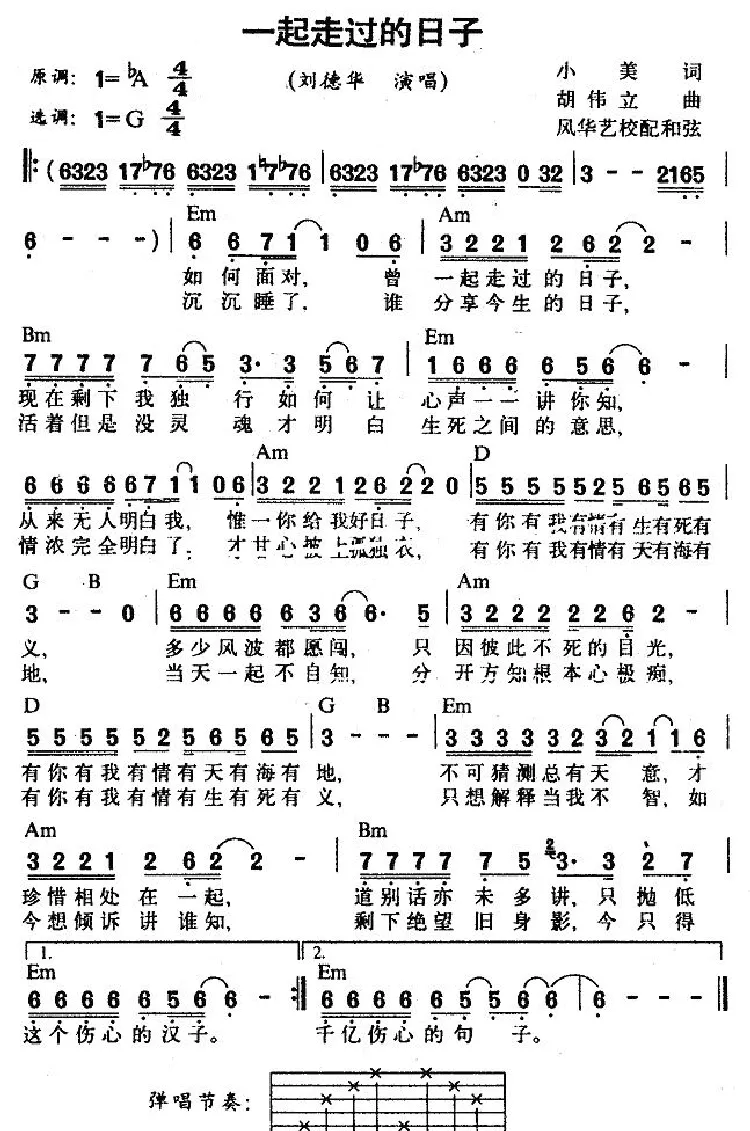 一起走过的日子
原调: 1=♭A 4/4
(刘德华 演唱)
小美 词
选调: 1=G 4/4
胡伟立 曲
风华艺校配和弦
(6323 17♭76 6323 1♭7♭76 | 6323 17♭76 6323 0 32 | 3 - - 2165 |
Em Am
6 - - -) | 6 6 7 1 1 0 6 | 3 2 2 1 2 6 2 2 - |
如何面对, 曾 一起走过的日子,
沉沉睡了, 谁 分享今生的日子,
Bm Em
7 7 7 7 7 6 5 3· 3 5 5 6 7 | 1 6 6 6 6 5 6 6 - |
现在剩下我独 行如何让 心声一一讲你知,
活着但是没灵 魂才明白 生死之间的意思,
Am D
6 6 6 6 6 7 1 1 0 6 | 3 2 2 1 2 6 2 2 0 | 5 5 5 5 5 2 5 6 5 6 5 |
从来无人明白我, 惟一你给我好日子, 有你有我有情有生有死有
情浓完全明白了, 才甘心披上孤独衣, 有你有我有情有天有海有
G B Em Am
3 - - 0 | 6 6 6 6 6 3 6 6· 5 | 3 2 2 2 2 2 6 2 - |
义, 多少风波都愿闯, 只 因彼此不死的目光,
地, 当天一起不自知, 分 开方知根本心极痴,
D G B Em
5 5 5 5 5 2 5 6 5 6 5 | 3 - - - | 3 3 3 3 3 2 3 2 1 1 6 |
有你有我有情有天有海有 地, 不可猜测总有天 意, 才
有你有我有情有生有死有 义, 只想解释当我不 智, 如
Am Bm
3 2 2 1 2 6 2 2 - | 7 7 7 7 7 5 3· 3 2 7 |
珍惜相处在一起, 道别话亦未多讲, 只抛低
今想倾诉讲谁知, 剩下绝望旧身影, 今只得
1. 2.
Em Em
6 6 6 6 6 5 6 6 - :| 6 6 6 6 6 5 5 6 6 6 - - |
这个伤心的汉子。 千亿伤心的句 子。
弹唱节奏: